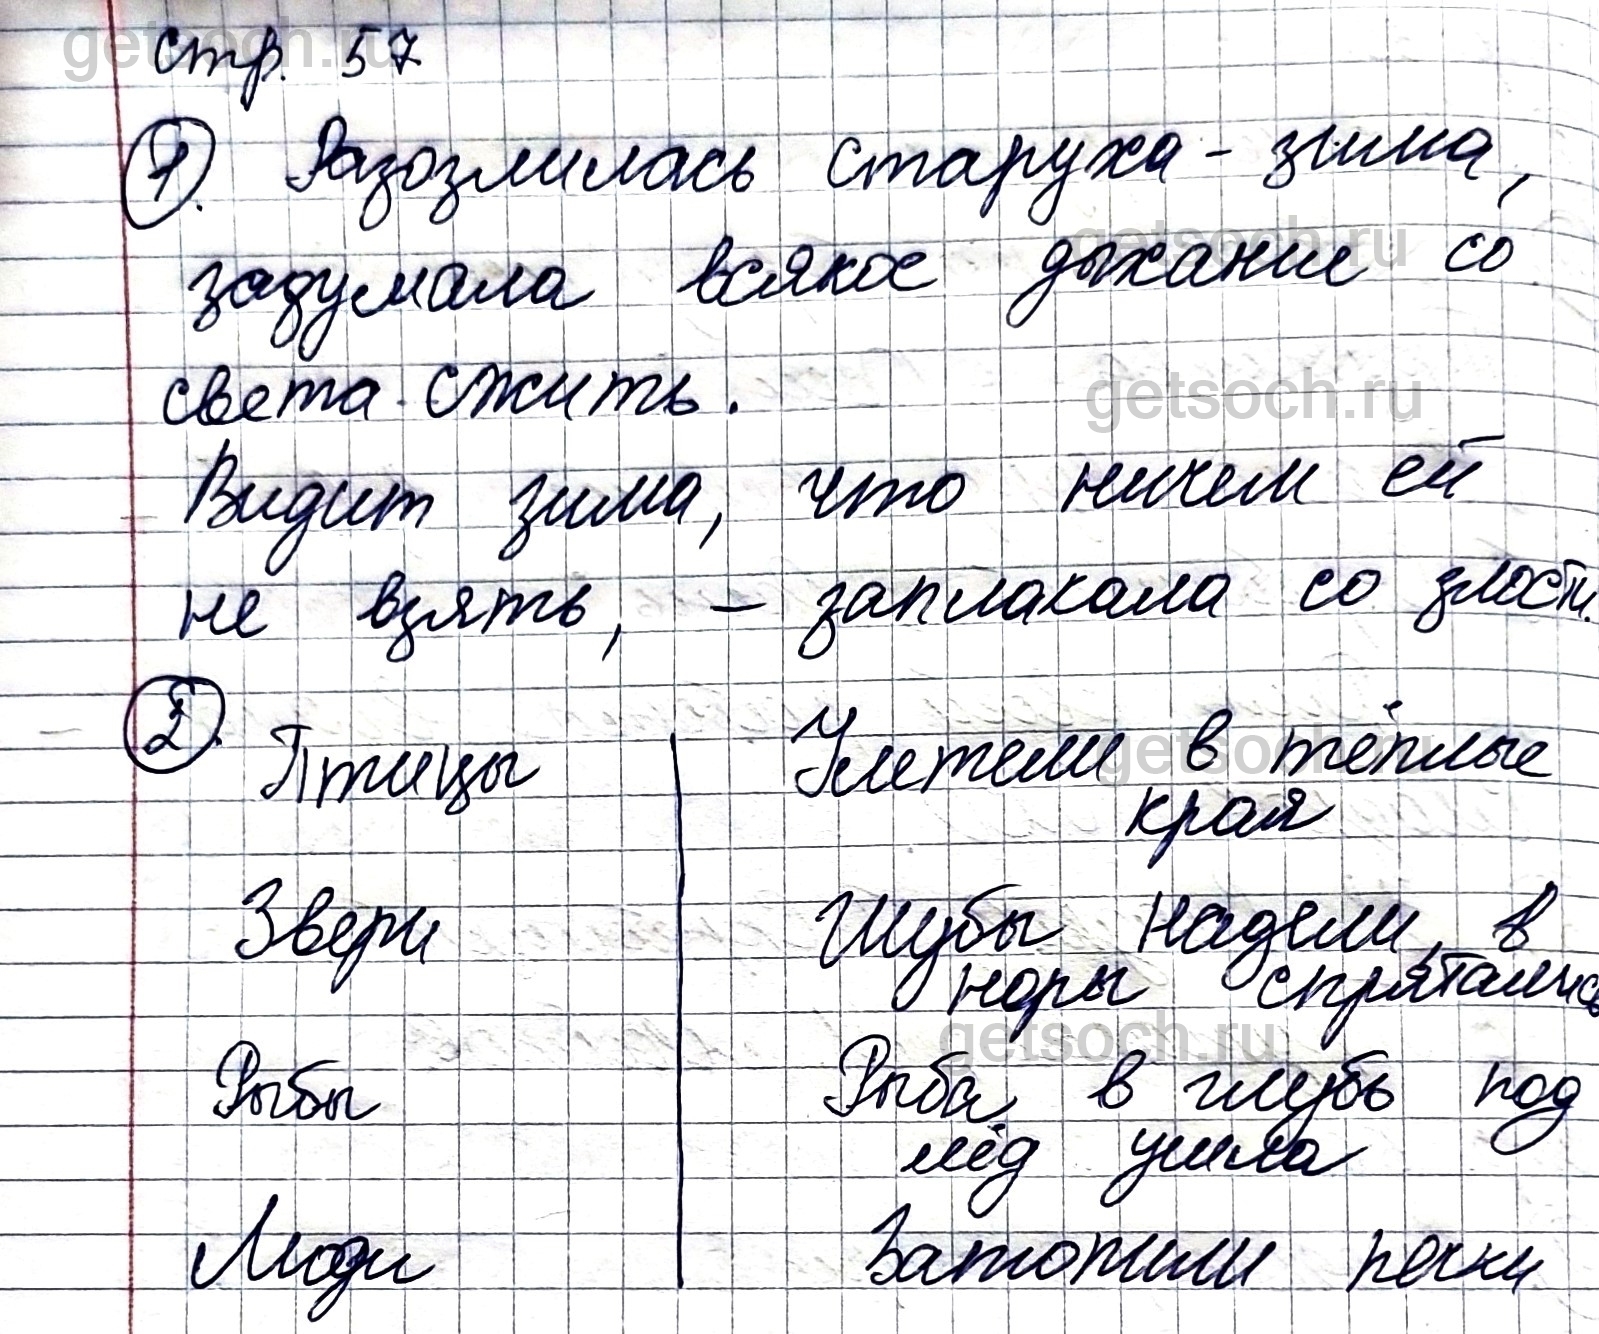 стр. 57
1. Разозлилась старуха - зима,
задумала всякое дыхание со
света сжить.
Видит зима, что ничем ей
не взять, - заплакала со злости.
2. Птицы Улетели в тёплые
края
Звери Шубы надели, в
норы спрятались
Рыбы Рыба в глубь под
лёд ушла
Люди Затопили печки
getsoch.ru
getsoch.ru
getsoch.ru
getsoch.ru
getsoch.ru